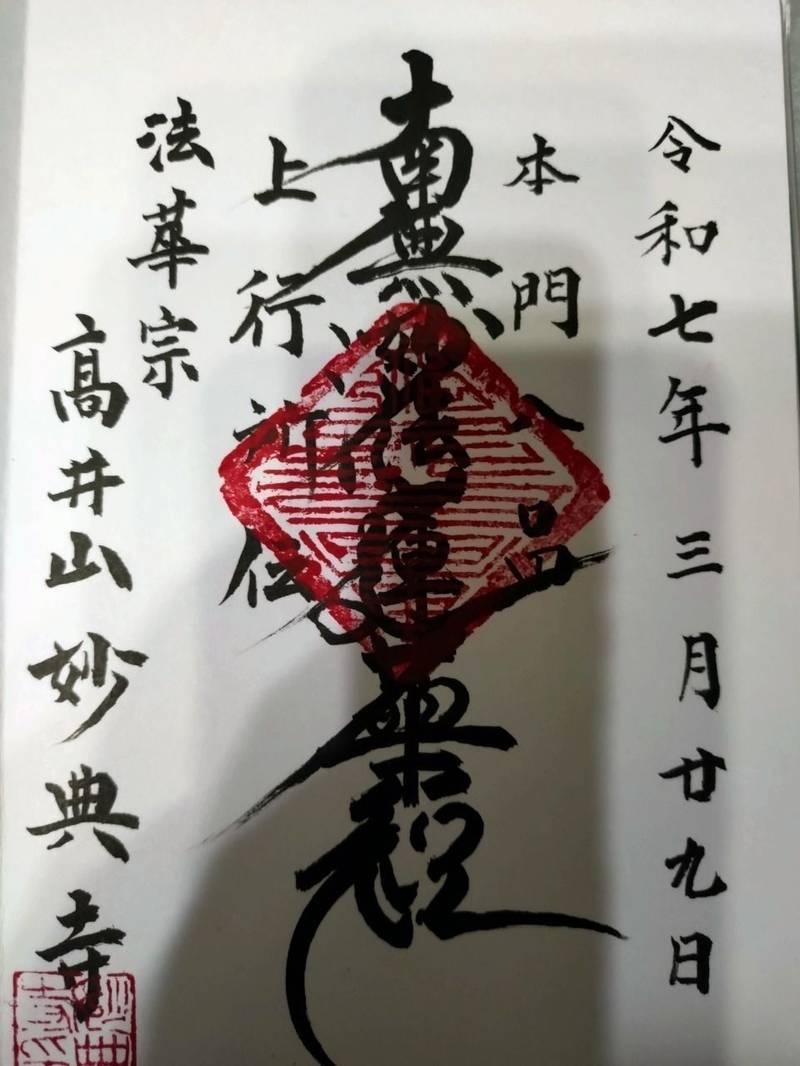 令和七年三月廿九日
本門八品
南無妙法蓮華經
上行所伝
法華宗
髙井山妙典寺